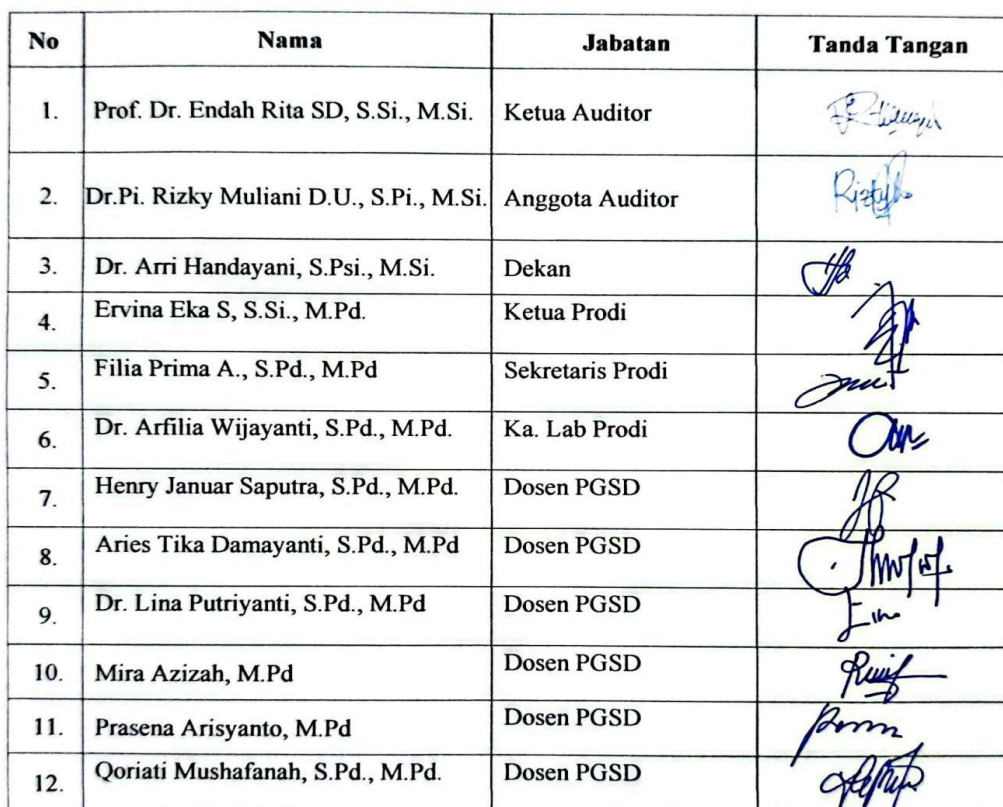 No Nama Jabatan Tanda Tangan
1. Prof. Dr. Endah Rita SD, S.Si., M.Si. Ketua Auditor
2. Dr.Pi. Rizky Muliani D.U., S.Pi., M.Si. Anggota Auditor
3. Dr. Arri Handayani, S.Psi., M.Si. Dekan
4. Ervina Eka S, S.Si., M.Pd. Ketua Prodi
5. Filia Prima A., S.Pd., M.Pd Sekretaris Prodi
6. Dr. Arfilia Wijayanti, S.Pd., M.Pd. Ka. Lab Prodi
7. Henry Januar Saputra, S.Pd., M.Pd. Dosen PGSD
8. Aries Tika Damayanti, S.Pd., M.Pd Dosen PGSD
9. Dr. Lina Putriyanti, S.Pd., M.Pd Dosen PGSD
10. Mira Azizah, M.Pd Dosen PGSD
11. Prasena Arisyanto, M.Pd Dosen PGSD
12. Qoriati Mushafanah, S.Pd., M.Pd. Dosen PGSD